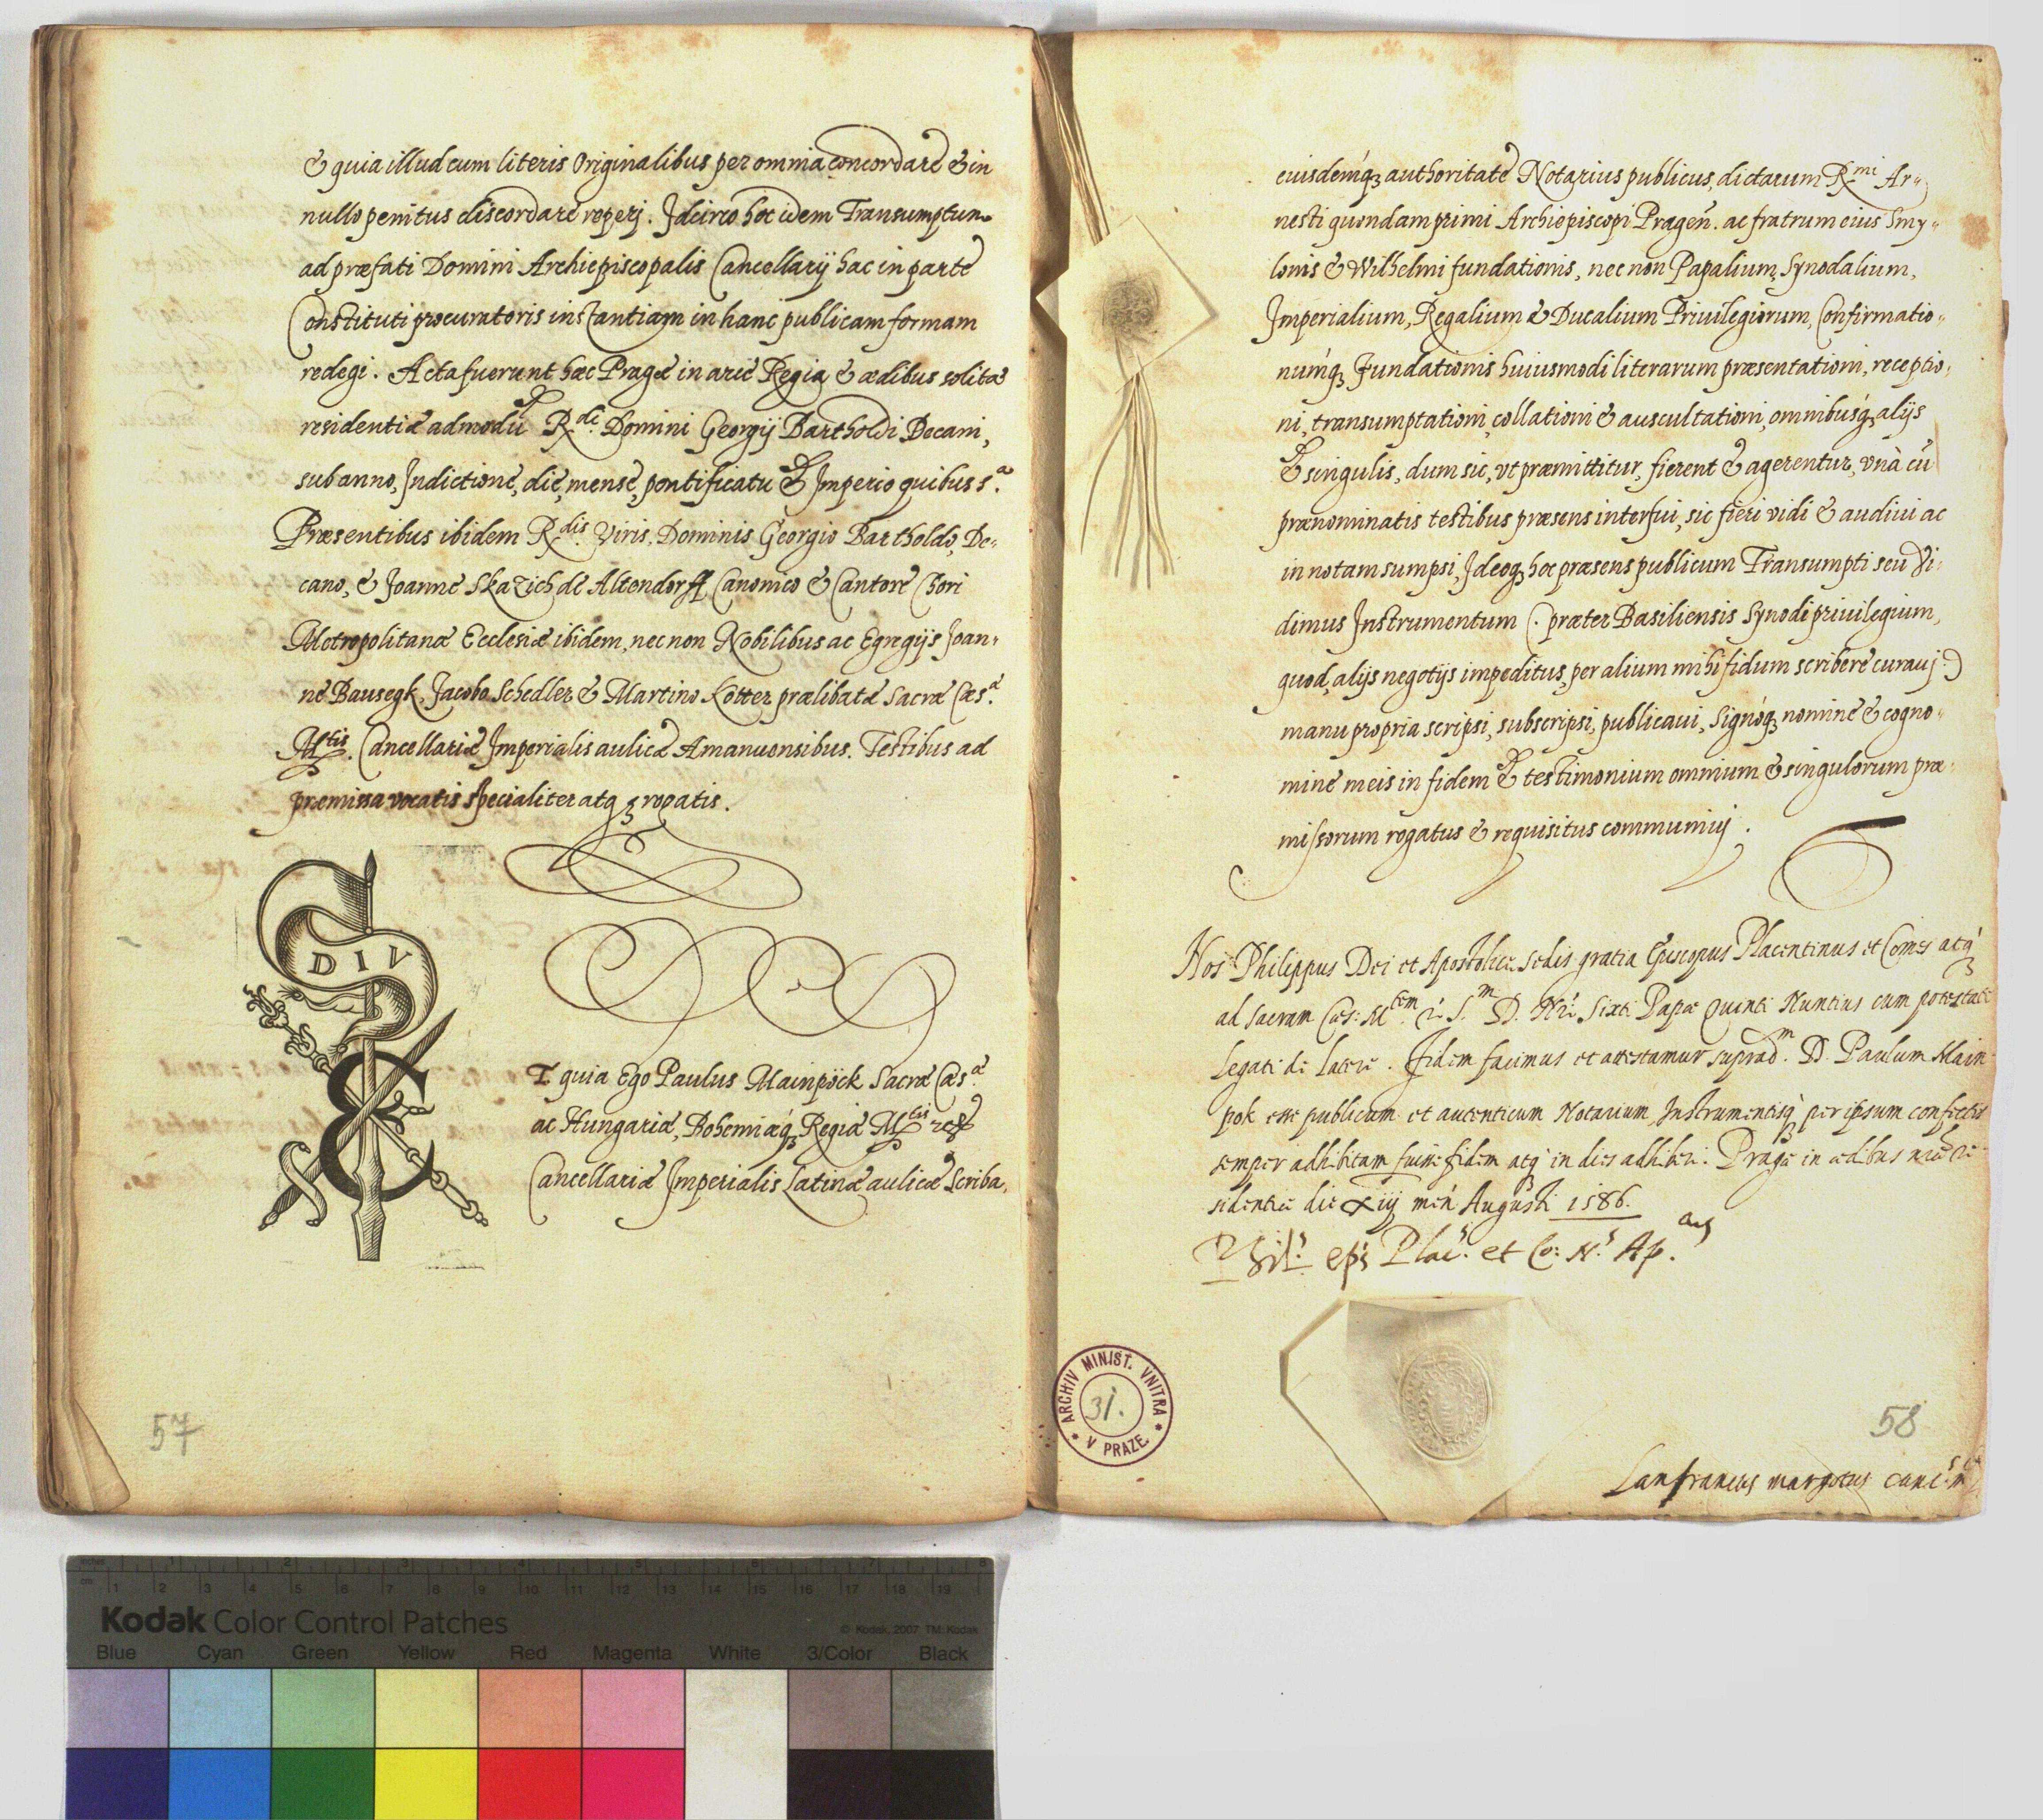 & quia illud cum literis Originalibus per omnia concordare & in
nullo penitus discordare reperj. Idcirco hoc idem Transumptum
ad præfati Domini Archiepiscopalis Cancellarij hac in parte
Constituti procuratoris instantiam in hanc publicam formam
redegi. Acta fuerunt hæc Pragæ in arce Regia & ædibus solitæ
residentiæ admodū R.di Domini Georgij Bartholdi Decani,
sub anno, Indictione, die, mense, pontificatu & Imperio quibus s.a
Præsentibus ibidem R.dis Viris, Dominis Georgio Bartholdo, De-
cano, & Joanne Skazich de Altendorff Canonico & Cantore Chori
Metropolitanæ Ecclesiæ ibidem, nec non Nobilibus ac Egregijs Joan-
ne Bausegk, Jacobo Schedler & Martino Kötter prælibatæ Sacræ Cæs.æ
M.tis Cancellariæ Imperialis aulicæ Amanuensibus. Testibus ad
præmissa vocatis specialiter atq3 rogatis.
DIV
ET quia Ego Paulus Mainpöck Sacræ Cæs.æ
ac Hungariæ, Bohemiæq3 Regiæ M.tis
Cancellariæ Imperialis Latinæ aulicæ Scriba,
57
eiusdemq3 authoritate Notarius publicus, dictarum R.mi Ar-
nesti quondam primi Archiepiscopi Pragen̄. ac fratrum eius Smy-
lonis & Wilhelmi fundationis, nec non Papalium, Synodalium,
Imperialium, Regalium & Ducalium Priuilegiorum, Confirmatio-
numq3 Fundationis huiusmodi literarum præsentationi, receptio-
ni, transumptationi, collationi & auscultationi, omnibusq3 alijs
& singulis, dum sic, vt præmittitur, fierent & agerentur, vnà cū
prænominatis testibus præsens interfui, sic fieri vidi & audiui ac
in notam sumpsi, Ideoq3 hoc præsens publicum Transumpti seu Vi-
dimus Instrumentum (. præter Basiliensis Synodi priuilegium,
quod, alijs negotijs impeditus, per alium mihi fidum scribere curauj :)
manu propria scripsi, subscripsi, publicaui, Signoq3 nomine & cogno-
mine meis in fidem & testimonium omnium & singulorum præ-
missorum rogatus & requisitus communiuj.
Nos Philippus Dei et Apostolicæ Sedis gratia Episcopus Placentinus et Comes atq3
ad Sacram Cæs: M.tem S.m D. Nri Sixti Papæ Quinti Nuntius cum potestate
Legati de latere. Fidem facimus et attestamur suprad.m D. Paulum Main-
pok esse publicum et autenticum Notarium, Instrumentisq3 per ipsum confectis
semper adhibitam fuisse fidem atq3 in dies adhiberi. Pragæ in ædibus nræ re-
sidentiæ die xiij men̄ Augusti 1586.
Phil.s ep̄s Plac.s et Co: N.s Ap.cus
ARCHIV MINIST. VNITRA
* V PRAZE *
31.
58
Lanfrancus margotus
Kodak Color Control Patches
© Kodak, 2007 TM: Kodak
Blue Cyan Green Yellow Red Magenta White 3/Color Black